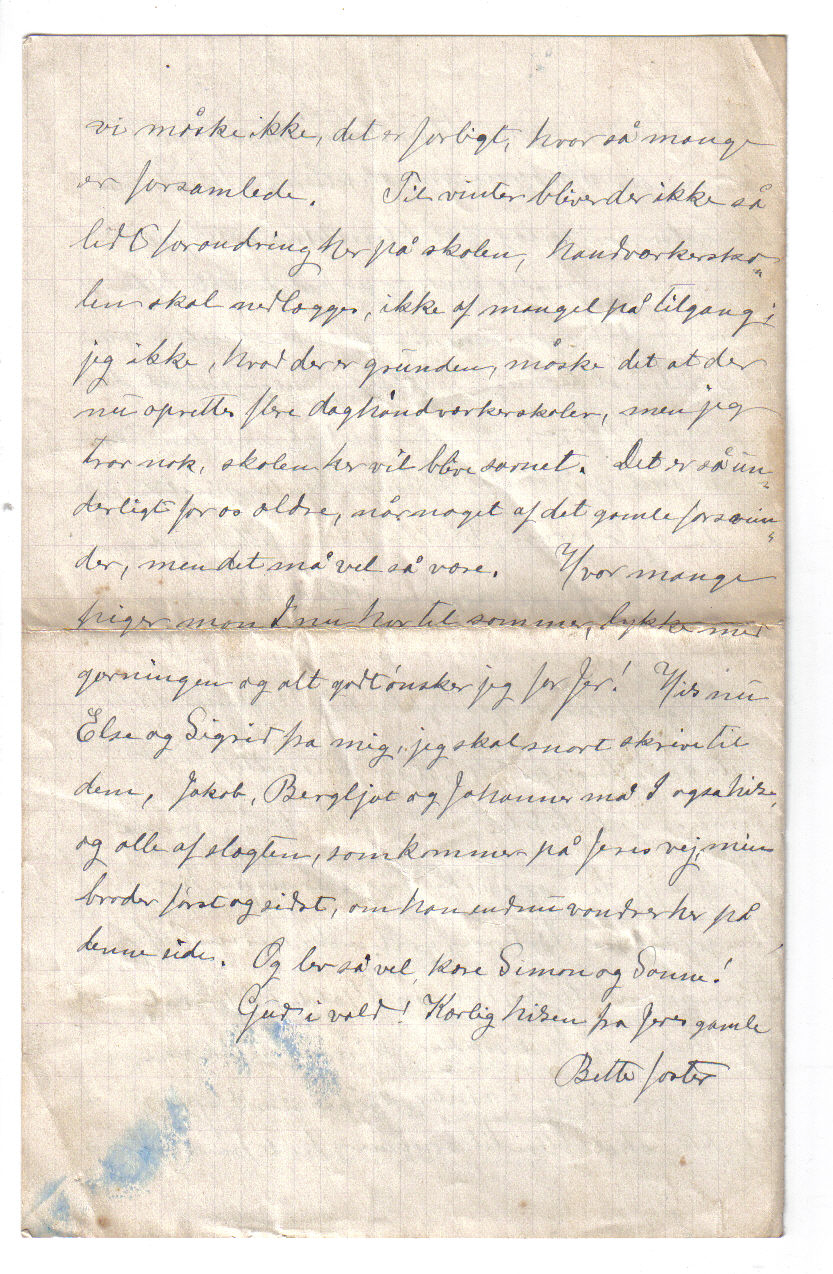 vi måske ikke, det er farligt, hvor så mange
er forsamlede. Til vinter bliver der ikke så
lidt forandring her på skolen, håndværkersko„
len skal nedlægges, ikke af mangel på tilgang,
jeg ikke, hvad der er grunden, måske det at der
nu oprettes flere daghåndværkerskoler, men jeg
tror nok, skolen her vil blive savnet. Det er så un„
derligt for os ældre, når noget af det gamle forsvin„
der, men det må vel så være. Hvor mange
piger mon I nu har til sommer, lykke med
gerningen og alt godt ønsker jeg for Jer! Hils nu
Else og Sigrid fra mig, jeg skal snart skrive til
dem, Jakob, Bergljot og Johanner må I også hilse,
og alle af slægten, som kommer på Jeres vej, min
broder først og sidst, om han endnu vandrer her på
denne side. Og lev så vel, kære Simon og Sanne!
Gud i vold! Kærlig hilsen fra Jeres gamle
Bette faster